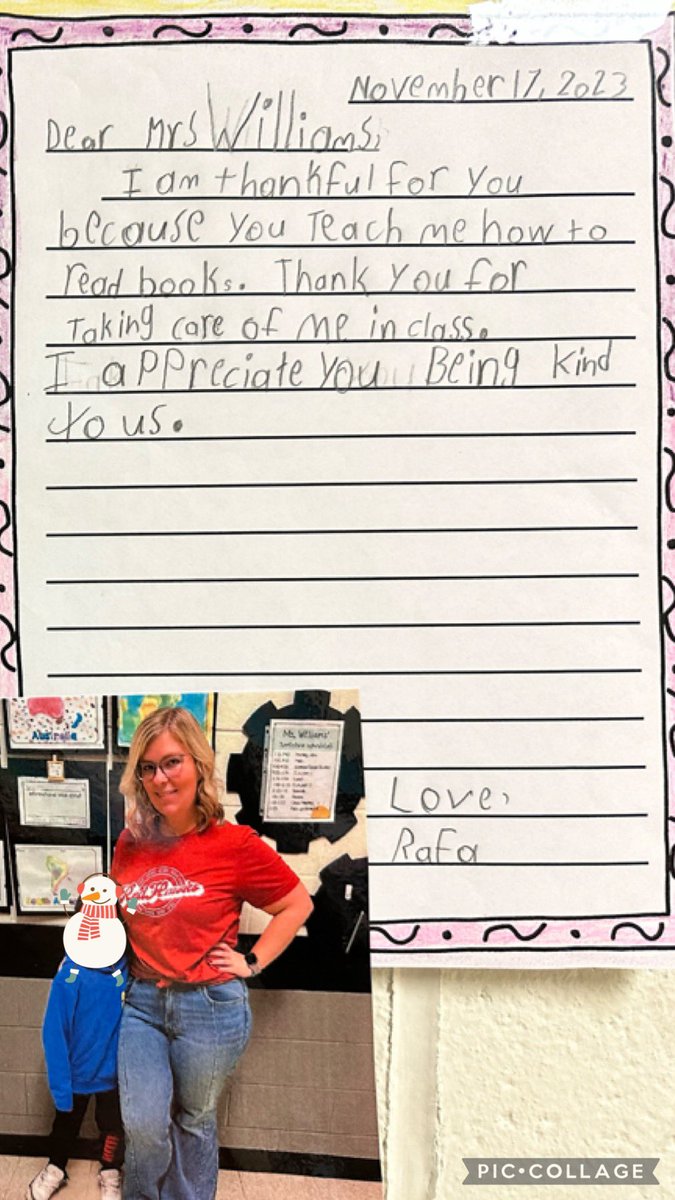 November 17, 2023
Dear Mrs Williams,
I am thankful for you
because you teach me how to
read books. Thank you for
taking care of me in class.
I appreciate you Being kind
to us.
Love,
Rafa
Australia
Ms. Williams'
PIC•COLLAGE